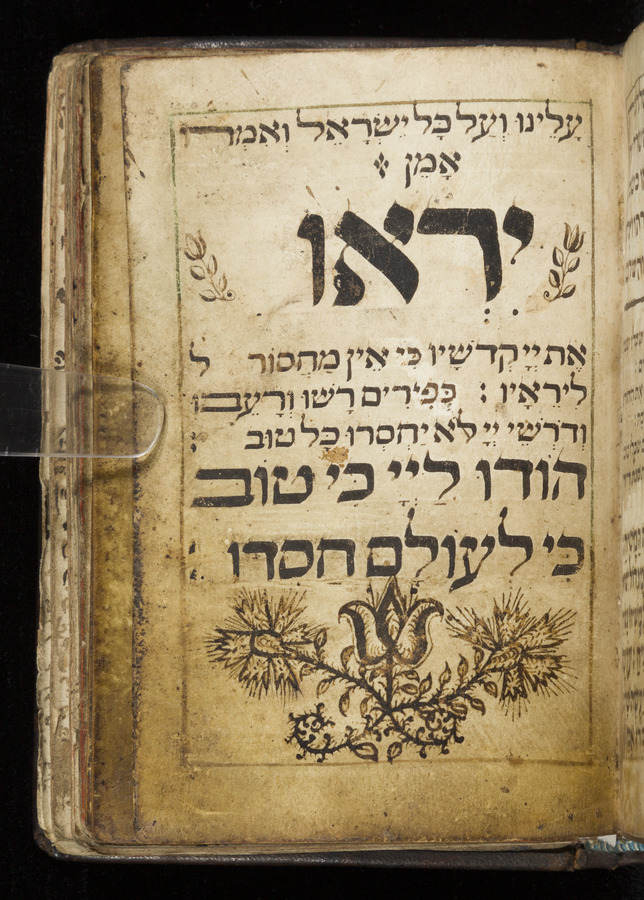 עָלֵינוּ וְעַל כָּל יִשְׂרָאֵל וְאִמְרוּ
אָמֵן
יִרְאוּ
אֶת יְיָ קְדשָׁיו כִּי אֵין מַחְסוֹר ל
לִירֵאָיו : כְּפִירִים רָשׁוּ וְרָעֵבוּ
וְדרְשֵׁי יְיָ לֹא יַחְסְרוּ כָל טוֹב :
הוֹדוּ לַייָ כִּי טוֹב
כִּי לְעוֹלָם חַסְדּוֹ :